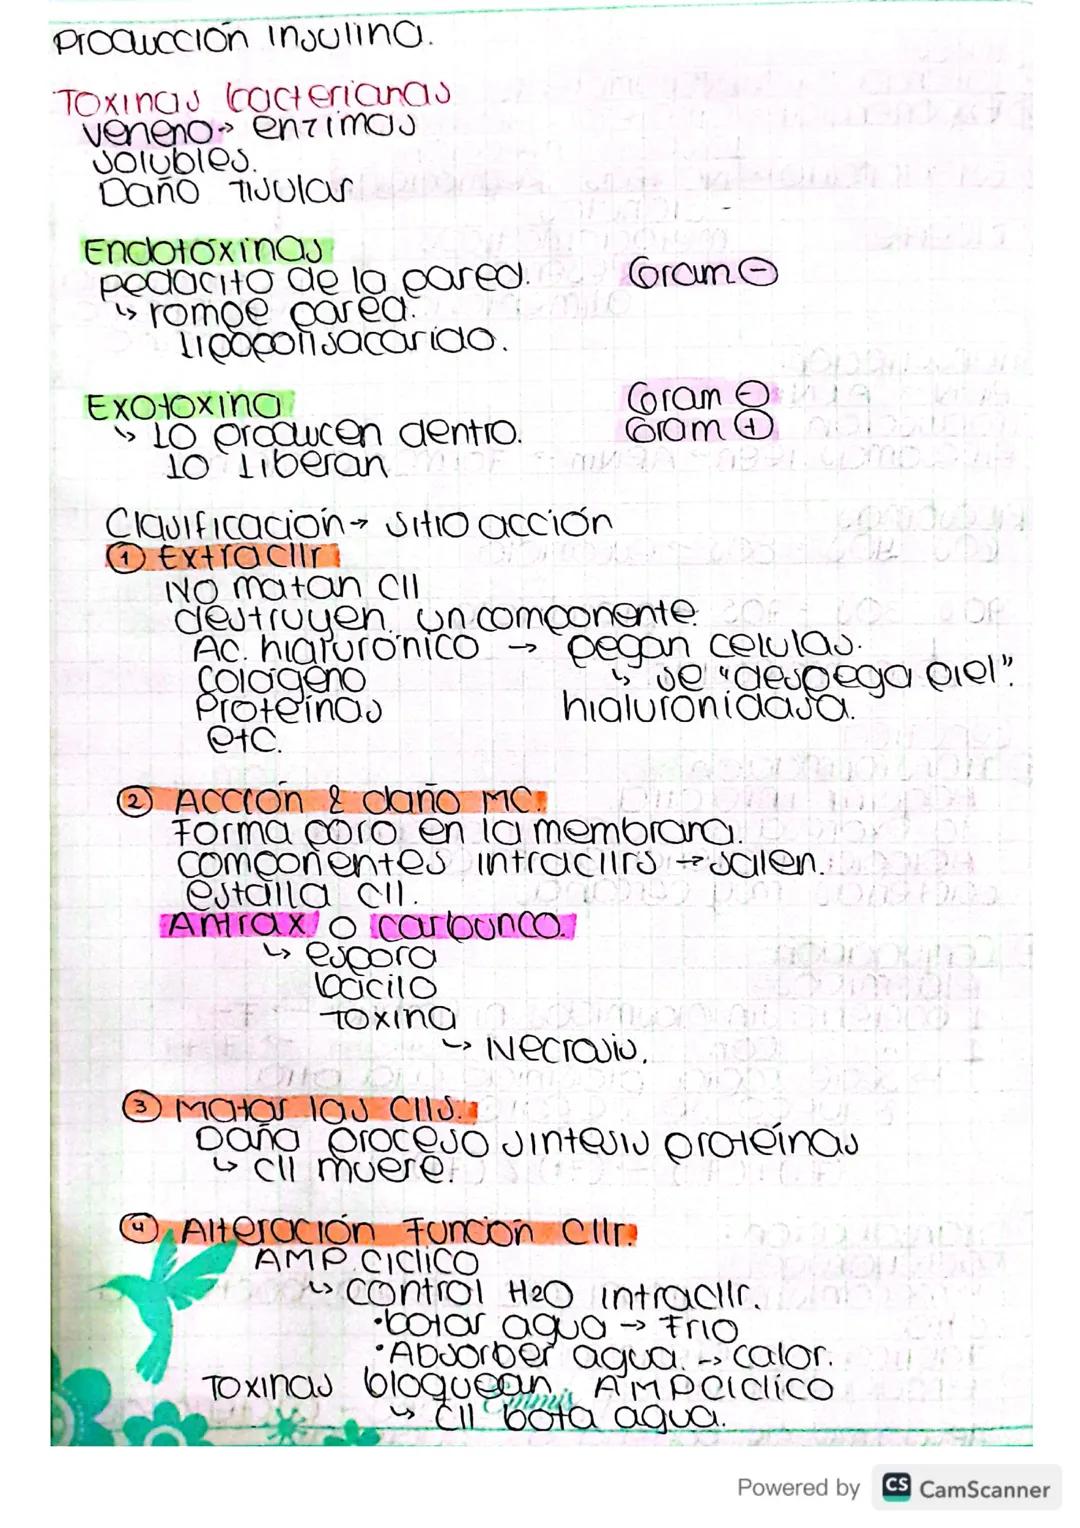 Producción insulina.
Toxinas bacterianas
veneno → enzimas
solubles.
Daño tisular
Endotoxinas
pedacito de la pared. Gram ⊖
↳ rompe pared.
lipopolisacarido.
Exotoxina Gram ⊖
↳ lo producen dentro. Gram ⊕
lo liberan
Clasificación → sitio acción
① Extracllr
No matan cll
destruyen un componente.
Ac. hialurónico → pegan celulas.
Colágeno ↳ se "despega piel".
Proteínas hialuronidasa.
etc.
② Acción & daño MC.
Forma poro en la membrana.
componentes intracllrs → salen.
estalla cll.
Antrax o carbunco.
↳ espora
bacilo
toxina
↳ Necrosis.
③ Matar las clls.
Daña proceso síntesis proteínas
↳ cll muere.
④ Alteración Función Cllr.
AMP ciclico
↳ control H2O intracllr.
•botar agua → Frio
•Absorber agua. → calor.
Toxinas bloquean AMPciclico
Emmis
↳ Cll bota agua.
Powered by CS CamScanner